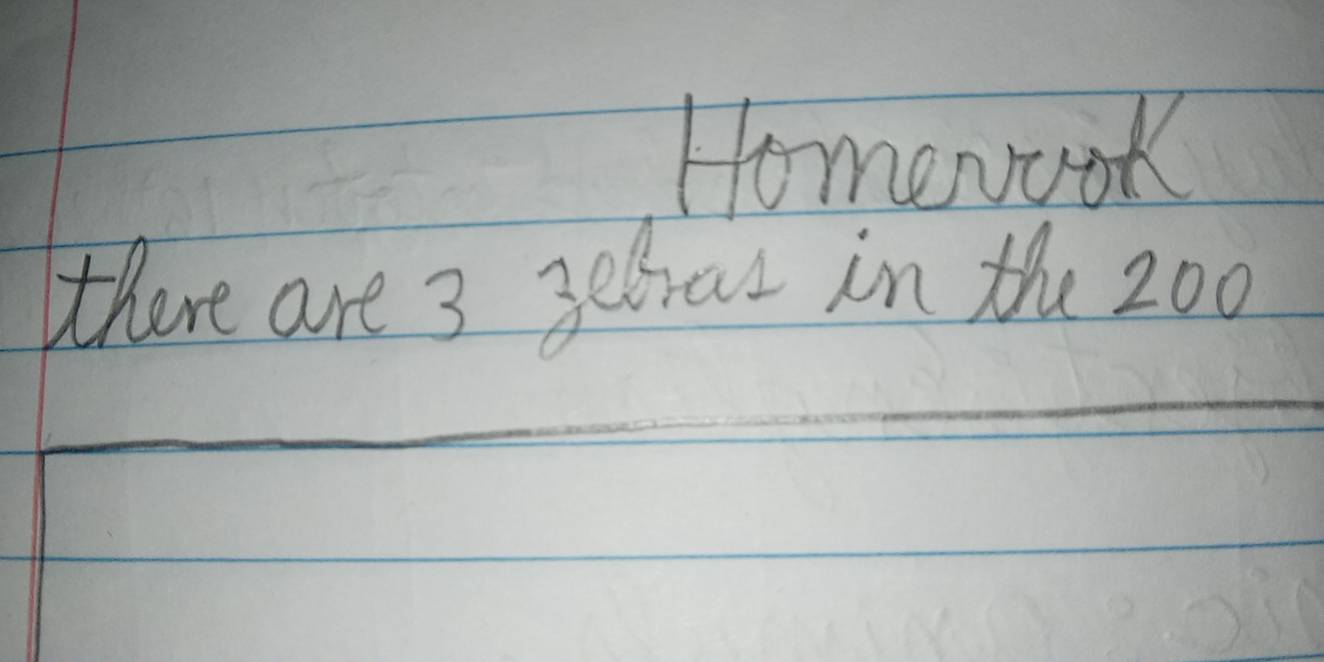 Homewok
there are 3 zebras in the 200